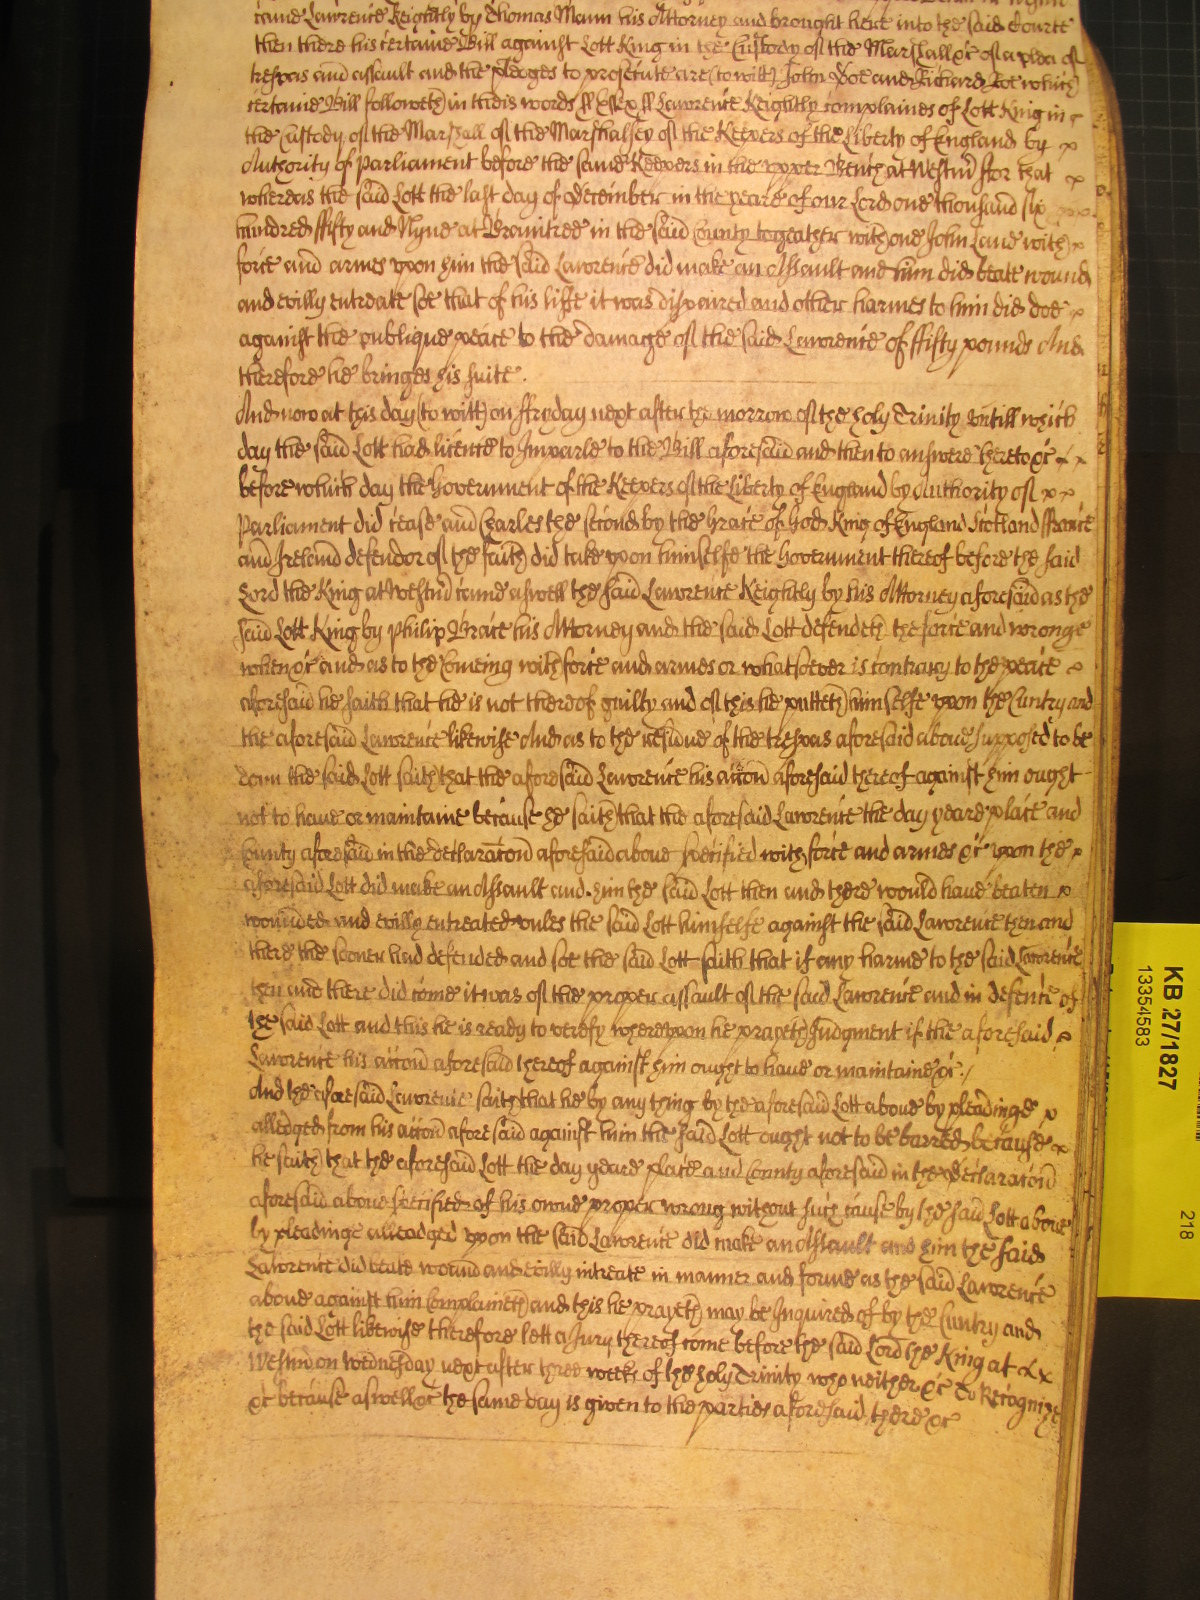 came Lawrence Keightly by Thomas Mann his Attorney and brought heere into the said Courte
then there his certaine Bill against Lott King in the Custody of the Marshall &c of a plea of
trespas and assault and the pledges to prosecute are (to witt) John Doe and Richard Roe which
certaine Bill followeth in theis words ss Essex ss Lawrence Keightly complaines of Lott King in
the Custody of the Marshall of the Marshalsey of the Keepers of the Liberty of England by
Authority of Parliament before the same Keepers in the upper Bench at Westm̃ ffor that
whereas the said Lott the last day of December in the yeare of our Lord one thousand six
hundred ffifty and Nyne at Braintree in the said County togeather with one John Lane with
force and armes upon him the said Lawrence did make an Assault and him did beate wound
and evilly entreate soe that of his liffe it was dispaired and other harmes to him did doe
against the publique peace to the damage of the said Lawrence of ffifty pounds And
therefore he bringes his suite.
And now at this day (to witt) on ffryday next after the morrow of the holy Trinity Untill which
day the said Lott had licence to Imparle to the Bill aforesaid and then to answere hereto &c
before which day the Government of the Keepers of the Liberty of England by Authority of
Parliament did cease and Charles the second by the Grace of God King of England Scotland ffrance
and Ireland defendor of the faith did take upon himselfe the Government thereof before the said
Lord the King at Westm̃ came aswell the said Lawrence Keightly by his Attorney aforesaid as the
said Lott King by Philip Brace his Attorney and the said Lott defendeth the force and wronge
when &c and as to the Comeing with force and armes or whatsoever is contrary to the peace
aforesaid he saith that he is not thereof guilty and of this he putteth himselfe upon the Cuntry and
the aforesaid Lawrence likewise And as to the residue of the trespas aforesaid above supposed to be
don the said Lott saith that the aforesaid Lawrence his accōn aforesaid thereof against him ought
not to have or maintaine because he saith that the aforesaid Lawrence the day yeare place and
County aforesaid in the declaracōn aforesaid above specified with force and armes &c upon the
aforesaid Lott did make an Assault and him the said Lott then and there would have beaten
wounded and evilly entreated unles the said Lott himselfe against the said Lawrence then and
there the sooner had defended and soe the said Lott saith that if any harme to the said Lawrence
then and there did come it was of the proper assault of the said Lawrence and in defence of
the said Lott and this he is ready to verefy whereupon he prayeth Judgment if the aforesaid
Lawrence his accōn aforesaid thereof against him ought to have or maintaine &c
And the aforesaid Lawrence saith that he by any thing by the aforesaid Lott above by pleadinge
alledged from his accōn aforesaid against him the said Lott ought not to be barred because
he saith that the aforesaid Lott the day yeare place and County aforesaid in the Declaracōn
aforesaid above specified of his owne proper wrong without such cause by the said Lott above
by pleadinge alleadged upon the said Lawrence did make an Assault and him the said
Lawrence did beate wound and evilly intreate in manner and forme as the said Lawrence
above against him Complaineth and this he prayeth may be Inquired of by the Cuntry and
the said Lott likewise therefore lett a Jury thereof come before the said Lord the King at
Westm̃ on Wednesday next after three weeks of the holy Trinity who neither &c To Recognize
&c because aswell &c the same day is given to the parties aforesaid there &c
KB 27/1827
13354583
218